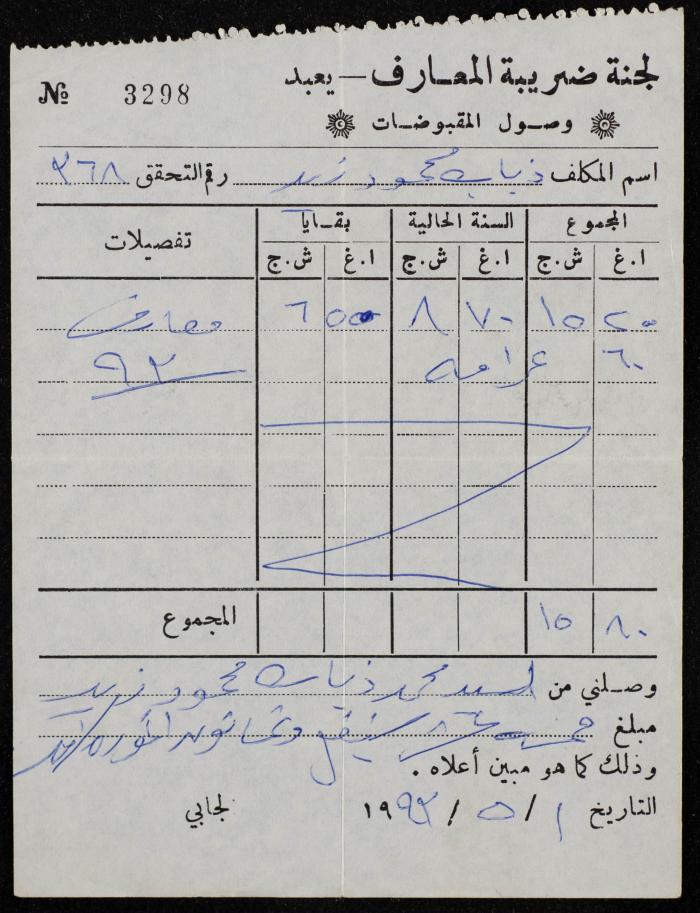 لجنة ضريبة المعارف — يعبد
№ 3298
وصول المقبوضات
اسم المكلف ذياب محمود زيد رقم التحقق ٣٦٨
المجموع السنة الحالية بقايا تفصيلات
ا.غ ش.ج ا.غ ش.ج ا.غ ش.ج
٢٠ ١٥ ٧٠ ٨ ٥٠ ٦ معارف
٦٠ غرامة ٩٢
المجموع ٨٠ ١٥
وصلني من السيد محمد ذياب محمود زيد
مبلغ خمسة عشر شيقل وثمانون اغوره
وذلك كما هو مبين أعلاه .
التاريخ ١ / ٥ / ١٩٩٣ لجابي